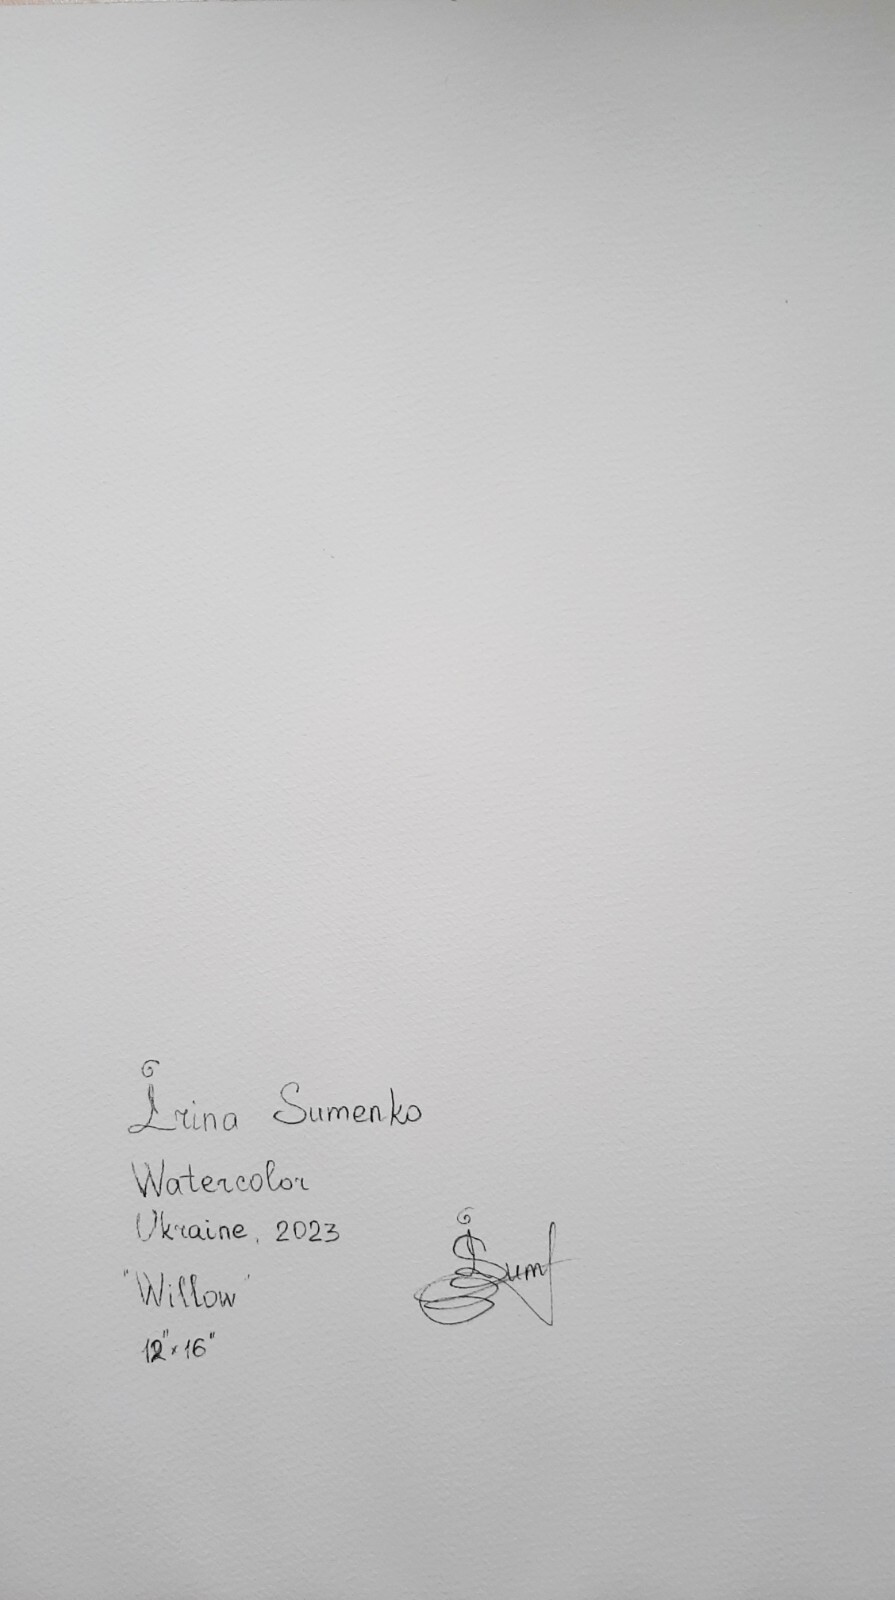 Irina Sumenko
Watercolor
Ukraine, 2023
"Willow"
12"×16"